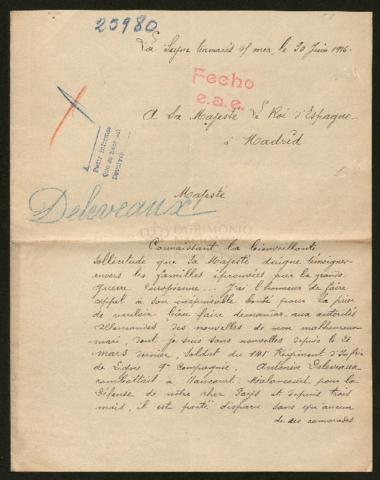 23980
La Seyne Tamaris s/ mer, le 30 Juin 1916.
Fecho
e.a.e.
A Sa Majesté le Roi d'Espagne
à Madrid
Pedir informes
Devolver
Majesté
Deleveaux
PATRIMONIO
Connaissant la bienveillante
sollicitude que Sa Majesté daigne témoigner
envers les familles éprouvées par la grande
guerre Européenne... J'ai l'honneur de faire
appel à son inépuisable bonté pour la prier
de vouloir bien faire demander aux autorités
Allemandes des nouvelles de mon malheureux
mari, dont je suis sans nouvelles depuis le 21
mars dernier, Soldat du 141 Régiment d'Infrie
de ligne 9e Compagnie. Antonin Deleveaux
combattait à Haucourt-Malancourt pour la
défense de notre cher Pays et depuis trois
mois, il est porté disparu sans qu'aucun
de ses camarades